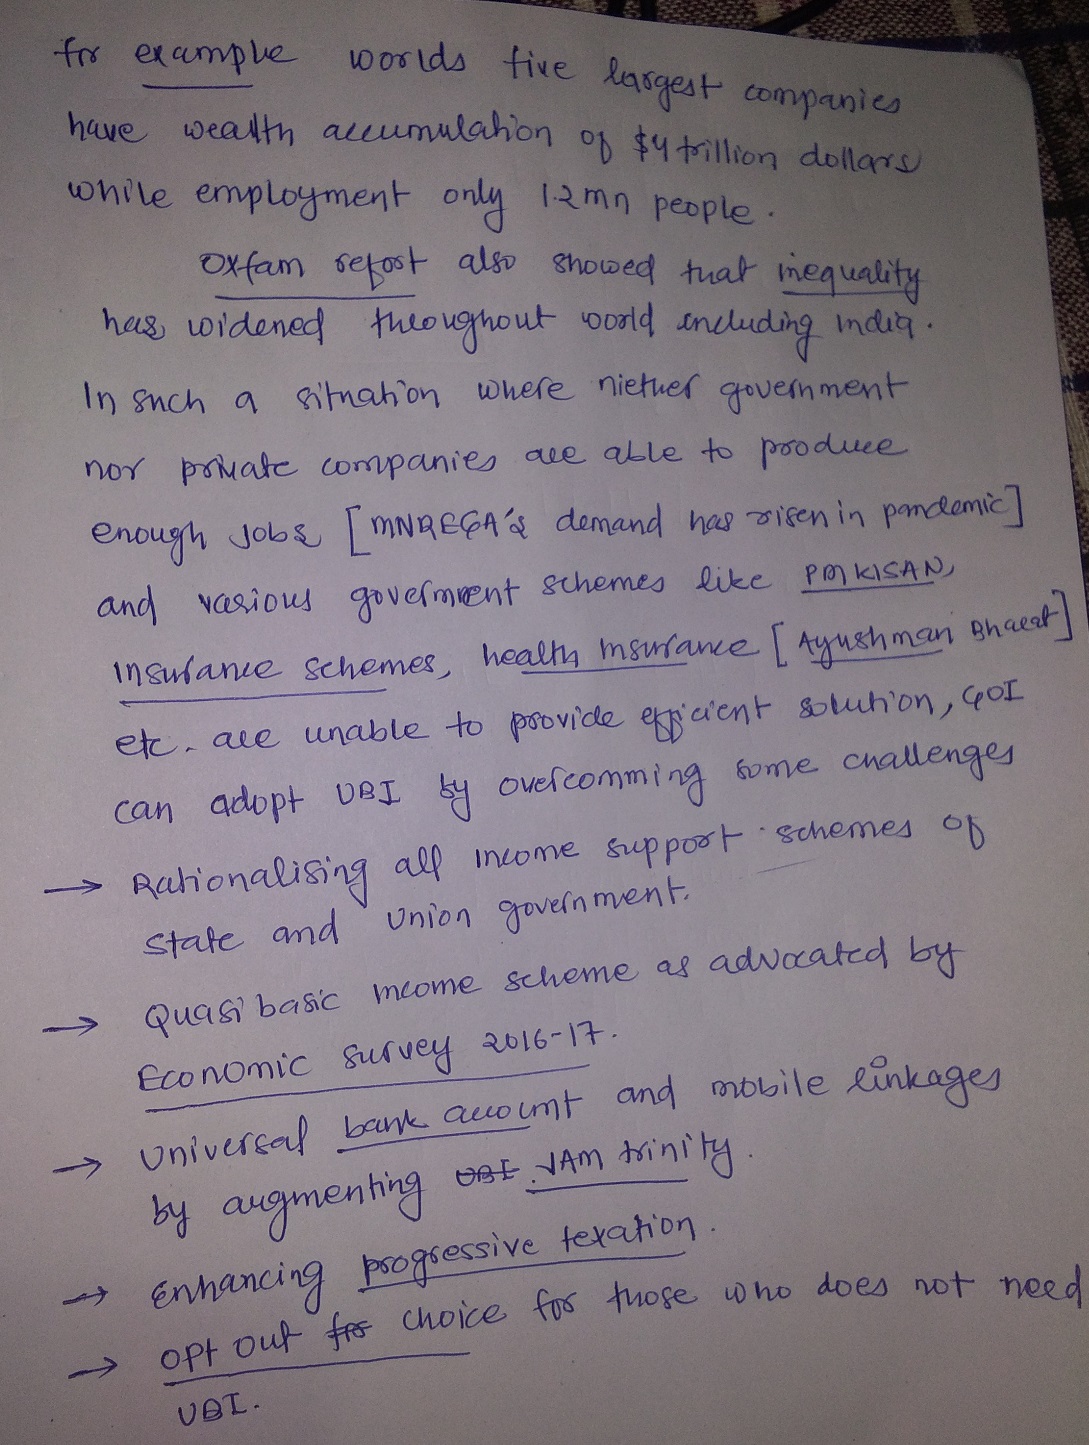 for example worlds five largest companies
have wealth accumulation of $4 trillion dollars
while employment only 1.2mn people.
Oxfam report also showed that inequality
has widened throughout world including India.
In such a situation where niether government
nor private companies are able to produce
enough jobs [MNREGA's demand has risen in pandemic]
and various government schemes like PM KISAN,
insurance schemes, health insurance [Ayushman Bharat]
etc. are unable to provide efficient solution, GOI
can adopt UBI by overcomming some challenges
→ Rationalising all income support schemes of
state and union government.
→ Quasi basic income scheme as advocated by
Economic survey 2016-17.
→ Universal bank account and mobile linkages
by augmenting UBI JAM trinity.
→ Enhancing progressive texation.
→ opt out for choice for those who does not need
UBI.